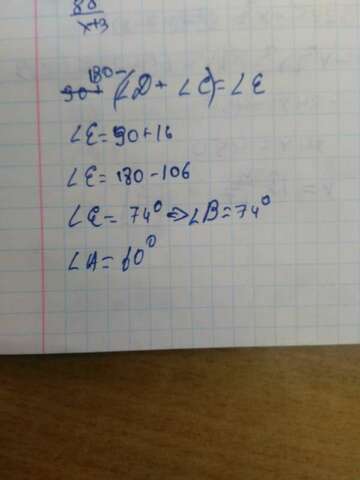 80
x+3
180-(∠D + ∠C)=∠E
∠E=90+16
∠E=180-106
∠E= 74° => ∠B=74°
∠A=60°